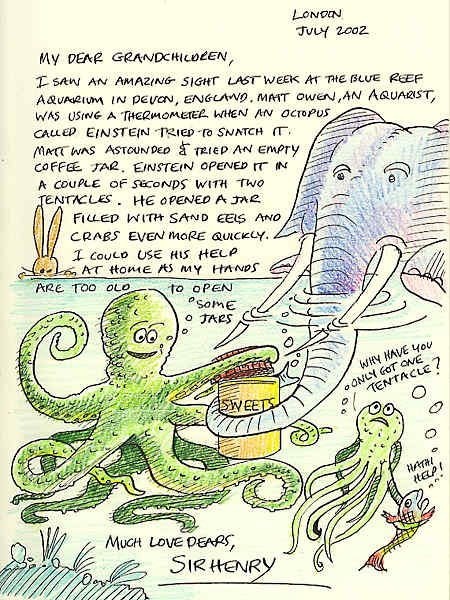 LONDON
JULY 2002
MY DEAR GRANDCHILDREN,
I SAW AN AMAZING SIGHT LAST WEEK AT THE BLUE REEF
AQUARIUM IN DEVON, ENGLAND. MATT OWEN, AN AQUARIST,
WAS USING A THERMOMETER WHEN AN OCTOPUS
CALLED EINSTEIN TRIED TO SNATCH IT.
MATT WAS ASTOUNDED & TRIED AN EMPTY
COFFEE JAR. EINSTEIN OPENED IT IN
A COUPLE OF SECONDS WITH TWO
TENTACLES. HE OPENED A JAR
FILLED WITH SAND EELS AND
CRABS EVEN MORE QUICKLY.
I COULD USE HIS HELP
AT HOME AS MY HANDS
ARE TOO OLD TO OPEN
SOME
JARS
WHY HAVE YOU
ONLY GOT ONE
TENTACLE?
SWEETS
HATHI
HELP!
MUCH LOVE DEARS,
SIR HENRY